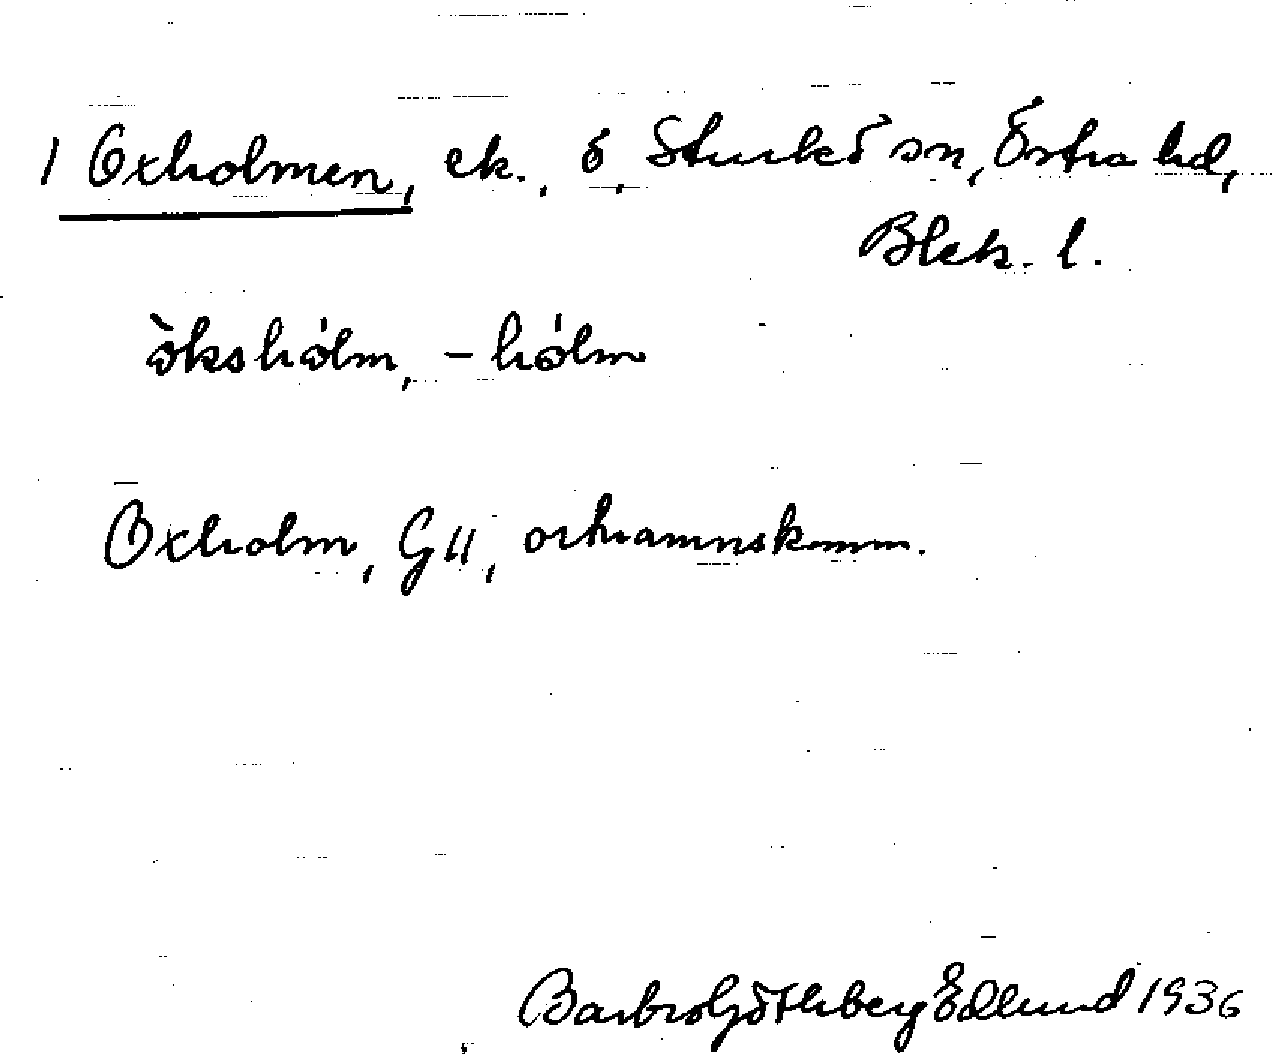 1 Oxholmen, ek., ö, Sturkö sn, Östra hd,
Blek. l.
òkshólm, -hólm
Oxholm, GU, ortnamnskomm.
Barbro Götherberg Edlund 1936